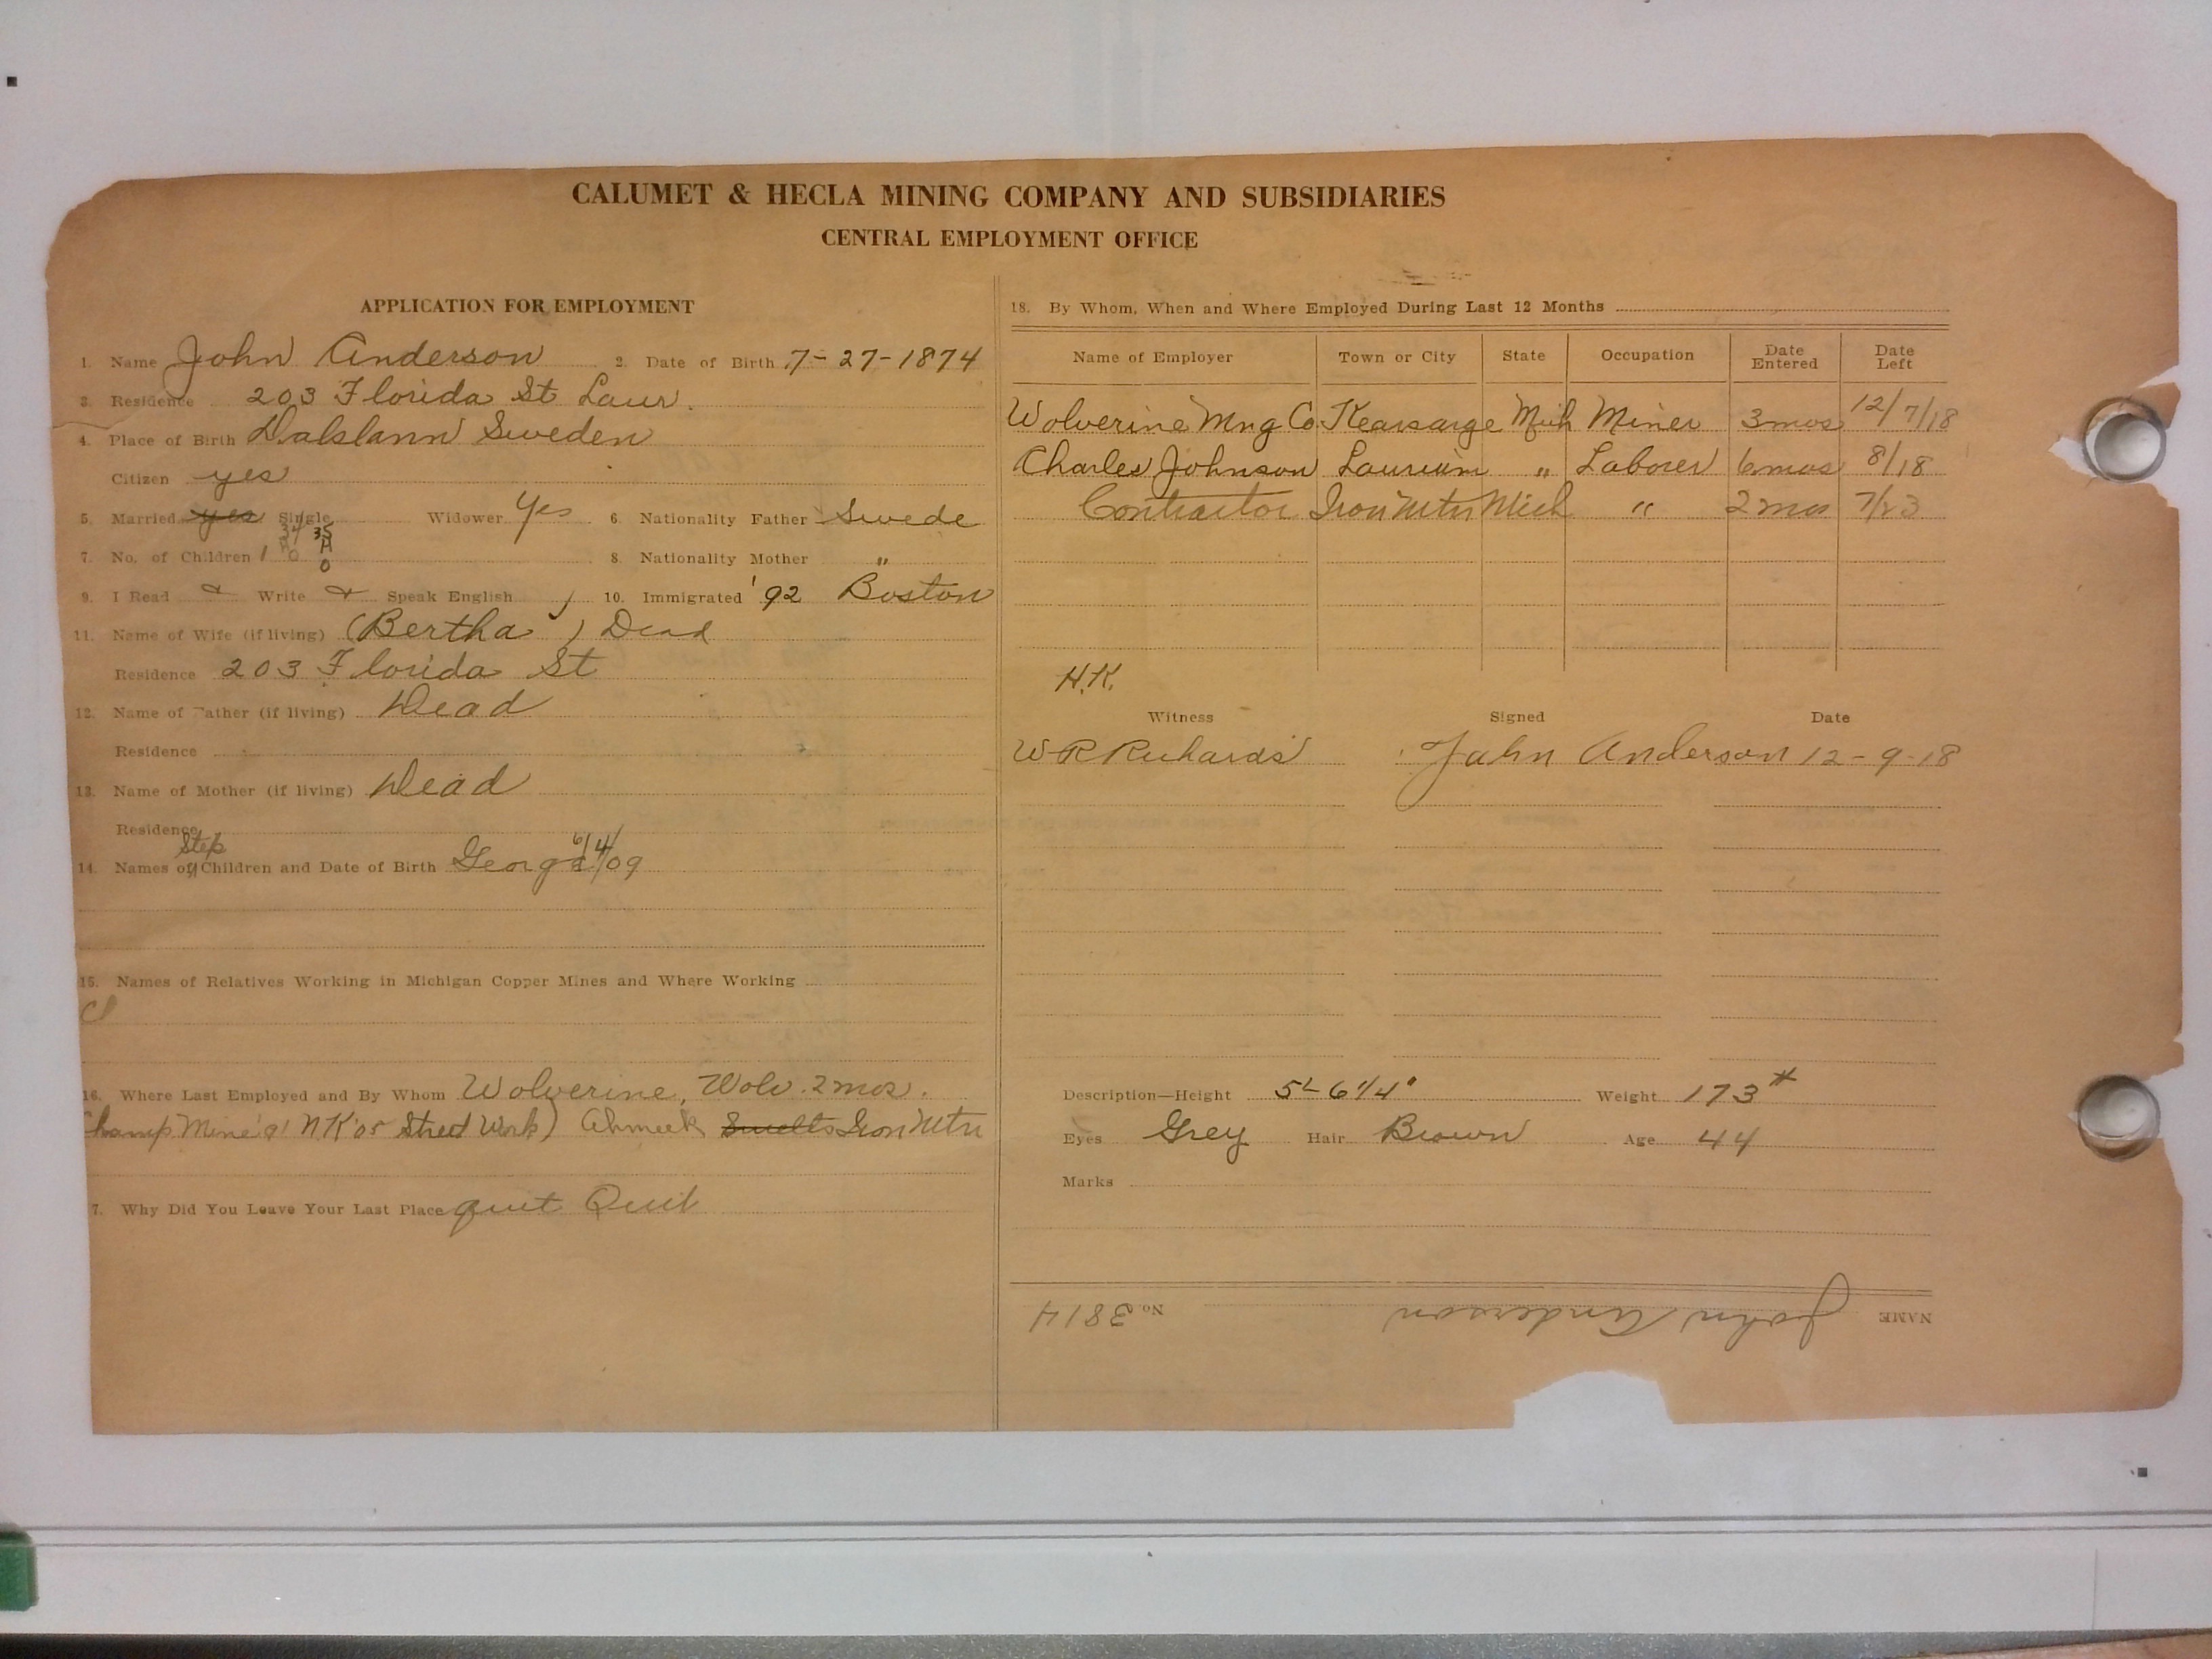 CALUMET & HECLA MINING COMPANY AND SUBSIDIARIES
CENTRAL EMPLOYMENT OFFICE
APPLICATION FOR EMPLOYMENT
1. Name John Anderson 2. Date of Birth 7-27-1874
3. Residence 203 Florida St Laur.
4. Place of Birth Dalslann Sweden
Citizen yes
5. Married yes Single Widower Yes 6. Nationality Father Swede
34 35
7. No. of Children 1 0 8. Nationality Mother "
9. I Read & Write & Speak English 10. Immigrated '92 Boston
11. Name of Wife (if living) (Bertha) Dead
Residence 203 Florida St
12. Name of Father (if living) Dead
Residence
13. Name of Mother (if living) Dead
Residence
Step
14. Names of Children and Date of Birth George 6/4/09
15. Names of Relatives Working in Michigan Copper Mines and Where Working
16. Where Last Employed and By Whom Wolverine, Wolv. 2 mos.
Champ Mine NK '05 Street Work) Ahmeek Smelts Iron Mtn
7. Why Did You Leave Your Last Place quit Quit
18. By Whom, When and Where Employed During Last 12 Months
Name of Employer Town or City State Occupation Date Entered Date Left
Wolverine Mng Co Kearsarge Mich Miner 3 mos 12/7/18
Charles Johnson Laurium " Laborer 6 mos 8/18
Contractor Iron Mtn Mich " 2 mos 7/23
H.K.
Witness Signed Date
W R Richards John Anderson 12-9-18
Description—Height 5'-6 1/4" Weight 173#
Eyes Grey Hair Brown Age 44
Marks
NAME John Anderson No. 3814